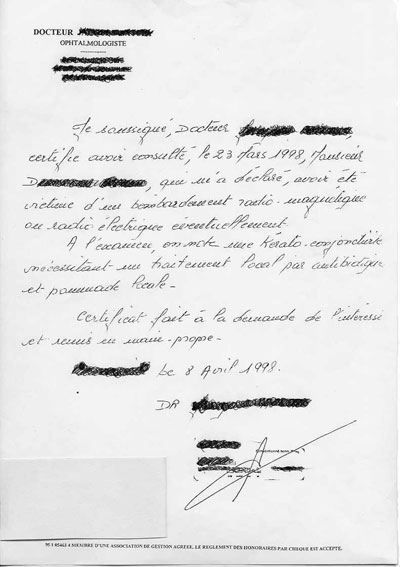 DOCTEUR
OPHTALMOLOGISTE
Je soussigné, Docteur
certifie avoir consulté, le 23 Mars 1998, Monsieur
D , qui m'a déclaré, avoir été
victime d'un bombardement radio-magnétique
ou radio électrique éventuellement.
A l'examen, on note une Kérato-conjonctivite
nécessitant un traitement local par antibiotique
et pommade locale-
Certificat fait à la demande de l'intéressé
et remis en main-propre-
le 8 Avril 1998.
DR
MEMBRE D'UNE ASSOCIATION DE GESTION AGREEE. LE REGLEMENT DES HONORAIRES PAR CHEQUE EST ACCEPTE.